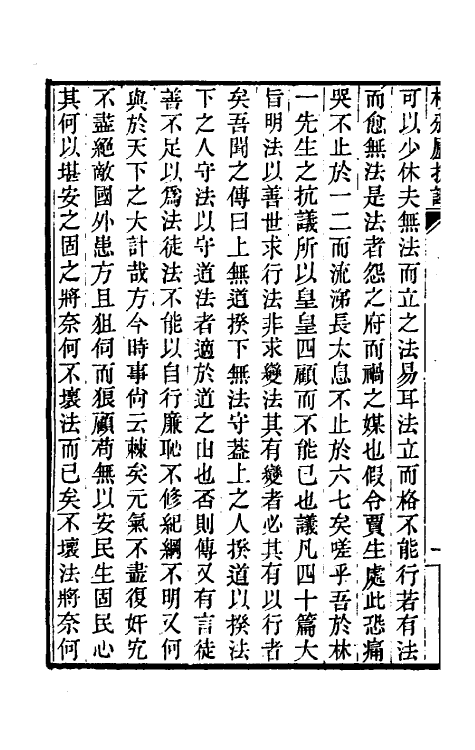 可以少休夫無法而立之法易耳法立而格不能行若有法
而愈無法是法者怨之府而禍之媒也假令賈生處此恐痛
哭不止於一二而流涕長太息不止於六七矣嗟乎吾於林
一先生之抗議所以皇皇四顧而不能已也議凡四十篇大
旨明法以善世求行法非求變法其有變者必其有以行者
矣吾聞之傳曰上無道揆下無法守蓋上之人揆道以揆法
下之人守法以守道法者適於道之山也否則傳又有言徒
善不足以爲法徒法不能以自行廉恥不修紀綱不明又何
與於天下之大計哉方今時事尙云棘矣元氣不盡復奸宄
不盡絕敵國外患方且狙伺而狼顧苟無以安民生固民心
其何以堪安之固之將奈何不壞法而已矣不壞法將奈何